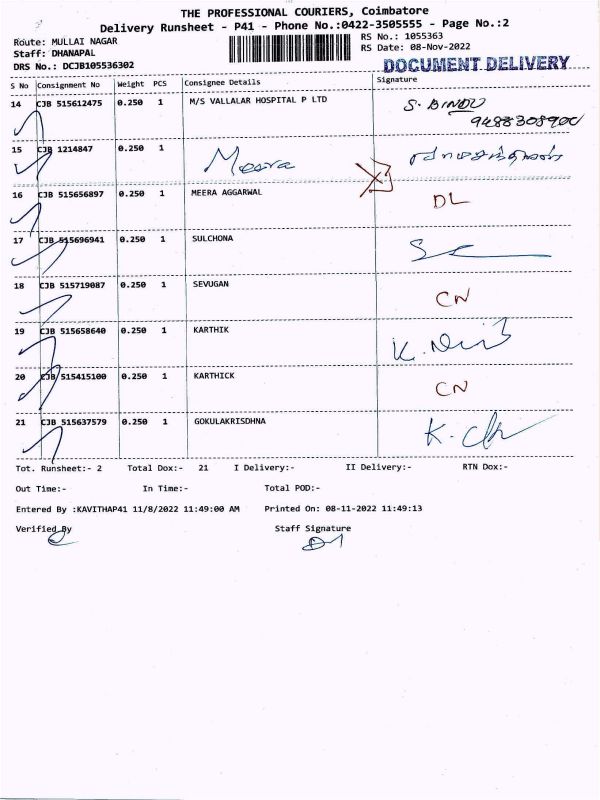 THE PROFESSIONAL COURIERS, Coimbatore
Delivery Runsheet - P41 - Phone No.:0422-3505555 - Page No.:2
Route: MULLAI NAGAR
Staff: DHANAPAL
DRS No.: DCJB105536302
RS No.: 1055363
RS Date: 08-Nov-2022
DOCUMENT DELIVERY
S No Consignment No Weight PCS Consignee Details Signature
14 CJB 515612475 0.250 1 M/S VALLALAR HOSPITAL P LTD S. BINDU
15 CJB 1214847 0.250 1 Meera
16 CJB 515656897 0.250 1 MEERA AGGARWAL DL
17 CJB 515696941 0.250 1 SULCHONA
18 CJB 515719087 0.250 1 SEVUGAN CN
19 CJB 515658640 0.250 1 KARTHIK K.
20 CJB 515415100 0.250 1 KARTHICK CN
21 CJB 515637579 0.250 1 GOKULAKRISDHNA K.
Tot. Runsheet:- 2 Total Dox:- 21 I Delivery:- II Delivery:- RTN Dox:-
Out Time:- In Time:- Total POD:-
Entered By :KAVITHAP41 11/8/2022 11:49:00 AM Printed On: 08-11-2022 11:49:13
Verified By Staff Signature